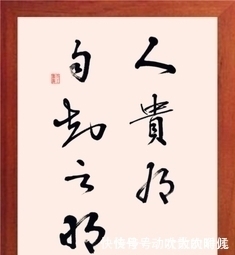 人貴有
自知之明